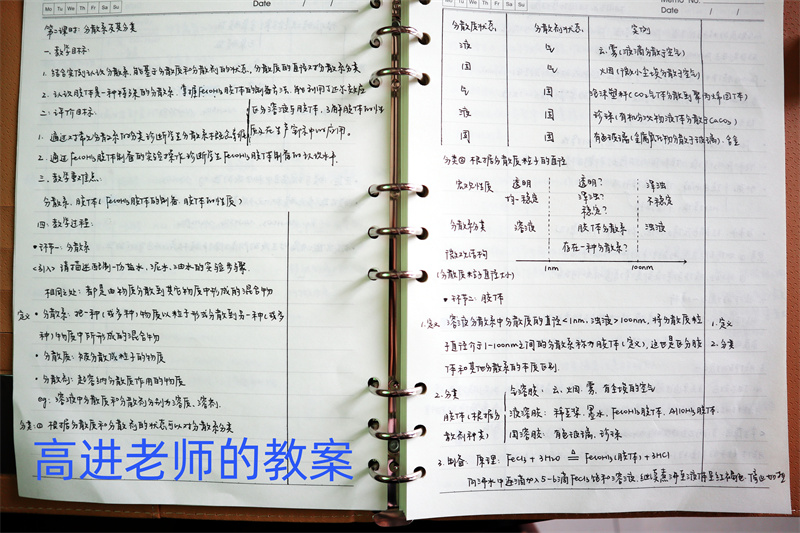 Mo Tu We Th Fr Sa Su
Date / /
第二课时: 分散系及其分类
一. 教学目标:
1. 结合实例认识分散系, 能基于分散质和分散剂的状态, 分散质的直径对分散系分类
2. 认识胶体是一种特殊的分散系, 掌握Fe(OH)3胶体的制备方法, 能利用丁达尔效应
区分溶液与胶体, 了解胶体的性
质及在生产
中的应用。
二. 评价目标:
1. 通过对常见分散系的分类诊断学生
2. 通过Fe(OH)3胶体制备的实验操作, 诊断学生Fe(OH)3胶体制备的认识水平.
三. 教学重难点:
分散系, 胶体 ( Fe(OH)3胶体的制备, 胶体的性质 )
四. 教学过程:
• 环节一: 分散系
<引入> 请描述配制一份盐水, 泥水, 油水的实验步骤.
相同之处: 都是由物质分散到其他物质中形成的混合物
定义 • 分散系: 把一种 (或多种) 物质以粒子形式分散到另一种 (或多
种) 物质中所形成的混合物
• 分散质: 被分散成粒子的物质
• 分散剂: 起容纳分散质作用的物质
eg: 溶液中分散质和分散剂分别为溶质、溶剂.
分类: ① 根据分散质和分散剂的状态可以对分散系分类
高进老师的教案
Mo Tu We Th Fr Sa Su
Memo No.
Date / /
分散质状态 分散剂状态 实例
液 气 云. 雾 (液滴分散于空气)
固 气 烟 (微小尘埃分散于空气)
气 固 泡沫塑料 (CO2气体分散到聚
固体)
液 固 珍珠 (有机分泌物液体分散于CaCO3)
固 固 有色玻璃 (金属氧化物分散于玻璃). 合金
分类② 根据分散质粒子的直径
宏观性质 透明 透明? 浑浊
均一稳定 浑浊? 不稳定
稳定?
分散系分类 溶液 胶体分散系 浊液
微观结构 存在一种分散系?
(分散质粒子直径大小) 1nm 100nm
• 环节二: 胶体
1. 定义 溶液分散系中分散质的直径<1nm, 浊液>100nm, 将分散质粒 1. 定义
子直径介于1-100nm之间的分散系称为胶体 (定义), 这也是区分胶 2. 分类
体和其他分散系的本质区别.
2. 分类 气溶胶: 云、烟. 雾. 有尘埃的空气
胶体 (根据分 液溶胶: 蛋
、墨水、Fe(OH)3胶体. Al(OH)3胶体
散剂种类) 固溶胶: 有色玻璃、珍珠
3. 制备: 原理: FeCl3 + 3H2O △ Fe(OH)3(胶体) + 3HCl
向沸水中逐滴加入5-6滴FeCl3饱和溶液. 继续煮沸至液体呈红褐色. 停止加热